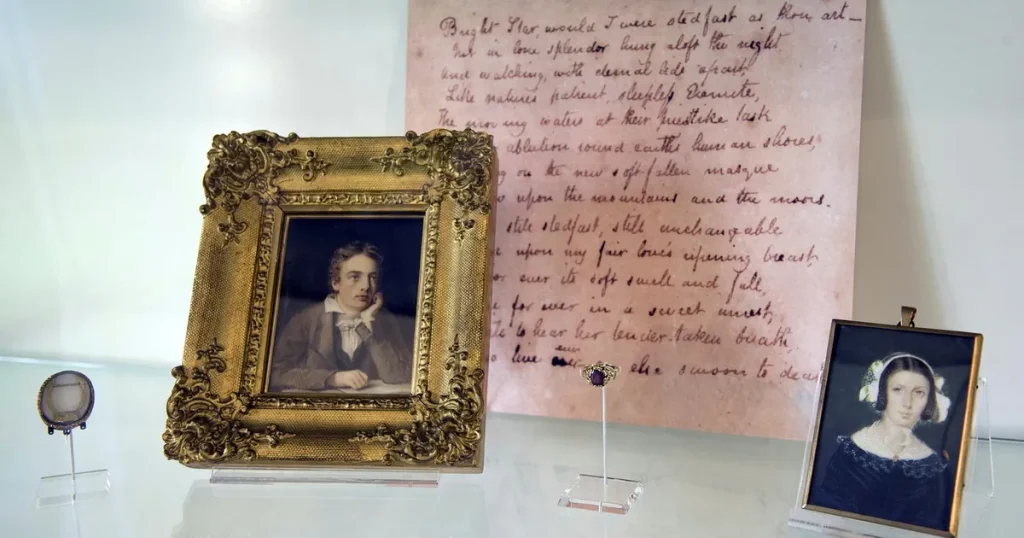 Bright Star, would I were stedfast as thou art—
Not in lone splendor hung aloft the night
and watching, with eternal lids apart,
Like natures patient, sleepless Eremite,
The moving waters at their priestlike task
ablution round earths human shores,
on the new soft fallen masque
upon the mountains and the moors.
still stedfast, still unchangeable
upon my fair love's ripening breast
ever its soft swell and fall
for ever in a sweet unrest,
to hear her tender-taken breath,
live ever else swoon to